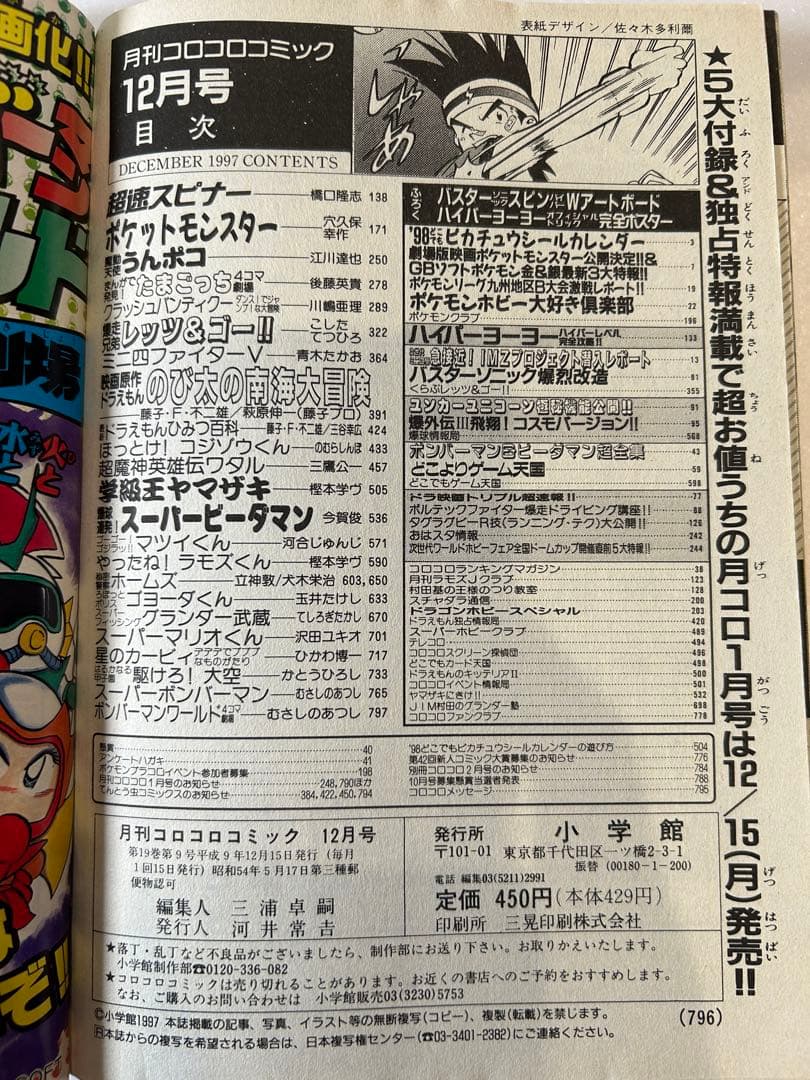 表紙デザイン／佐々木多利薾
月刊コロコロコミック
12月号
目次
DECEMBER 1997 CONTENTS
じゃあ
超速スピナー 橋口隆志 138
ポケットモンスター 穴久保幸作 171
魔動天使うんポコ 江川達也 250
まんがで発見！たまごっち4コマ劇場 後藤英貴 278
クラッシュバンディクー ダンス！でジャンプ！な大冒険 川嶋亜理 289
爆走兄弟レッツ&ゴー!! こしたてつひろ 322
ミニ四ファイターV 青木たかお 364
映画原作ドラえもん のび太の南海大冒険
藤子・F・不二雄／萩原伸一(藤子プロ) 391
ドラえもんひみつ百科 藤子・F・不二雄／三谷幸広 424
ほっとけ！コジゾウくん のむらしんぼ 433
超魔神英雄伝ワタル 三鷹公一 457
学級王ヤマザキ 樫本学ヴ 505
爆球連発！スーパービーダマン 今賀俊 536
ゴーゴー！ゴジラッ!!マツイくん 河合じゅんじ 571
やったね！ラモズくん 樫本学ヴ 590
ホームズ 立神敦／犬木栄治 603,650
ろぼっとポリス ゴヨーダくん 玉井たけし 633
スーパーフィッシング グランダー武蔵 てしろぎたかし 670
スーパーマリオくん 沢田ユキオ 701
星のカービィ デデデでプププなものがたり ひかわ博一 717
はるかなる甲子園 駆けろ！大空 かとうひろし 753
スーパーボンバーマン むさしのあつし 765
ボンバーマンワールド 4コマ劇場 むさしのあつし 797
ふろく
バスターソニック スピンバイパー Wアートボード
ハイパーヨーヨーオフィシャルトリック完全ポスター
'98どこでもピカチュウシールカレンダー 3
劇場版映画ポケットモンスター公開決定!!&
GBソフトポケモン金&銀最新3大特報!! 7
ポケモンリーグ九州地区B大会激戦レポート!! 19
ポケモンホビー大好き倶楽部 22
ポケモンクラブ 196
ハイパーヨーヨー ハイパーレベル完全攻略!! 133
急接近！IMZプロジェクト潜入レポート 13
バスターソニック爆烈改造 81
くらぶレッツ&ゴー!! 355
ユンカーユニコーン極秘機能公開!! 91
爆外伝III飛翔！コスモバージョン!! 95
爆球情報局 568
ボンバーマンB ビーダマン超全集 43
どこよりゲーム天国 59
どこでもゲーム天国 598
ドラ映画トリプル超速報!! 77
ボルテックファイター爆走ドライビング講座!! 88
タグラグビーR技(ランニング・テク)大公開!! 126
おはスタ情報 242
次世代ワールドホビーフェア全国ドームカップ開催直前5大特報!! 244
コロコロランキングマガジン 38
月刊ラモズJクラブ 123
村田基の王様のつり教室 128
スチャダラ通信 200
ドラゴンホビースペシャル 203
ドラえもん独占情報局 420
スーパーホビークラブ 489
テレコロ 494
コロコロスクリーン探偵団 496
どこでもカード天国 498
ドラえもんのキッテリアII 500
コロコロイベント情報局 501
ヤマザキにきけ!! 532
JIM村田のグランダー塾 698
コロコロファンクラブ 778
懸賞 40
アンケートハガキ 41
ポケモンプラコロイベント参加者募集 198
月刊コロコロ1月号のお知らせ 248,790ほか
てんとう虫コミックスのお知らせ 384,422,450,794
'98どこでもピカチュウシールカレンダーの遊び方 504
第42回新人コミック大賞募集のお知らせ 776
別冊コロコロ2月号のお知らせ 784
10月号募集懸賞当選者発表 788
コロコロメッセージ 795
月刊コロコロコミック 12月号
第19巻第9号平成9年12月15日発行(毎月
1回15日発行)昭和54年5月17日第三種郵
便物認可
編集人 三浦卓嗣
発行人 河井常吉
発行所 小学館
〒101-01 東京都千代田区一ツ橋2-3-1
振替(00180-1-200)
電話 編集03(5211)2991
定価 450円(本体429円)
印刷所 三晃印刷株式会社
★落丁・乱丁など不良品がございましたら、制作部にお送り下さい。お取りかえいたします。
小学館制作部☎0120-336-082
★コロコロコミックは売り切れることがあります。お近くの書店へのご予約をおすすめします。
なお、ご購入のお問い合わせは 小学館販売03(3230)5753
©小学館1997 本誌掲載の記事、写真、イラスト等の無断複写(コピー)、複製(転載)を禁じます。
R本誌からの複写を希望される場合は、日本複写権センター(☎03-3401-2382)にご連絡ください。
(796)
★5大付録&独占特報満載で超お値うちの月コロ1月号は12/15(月)発売!!
画化!!
劇場
ぞ!!